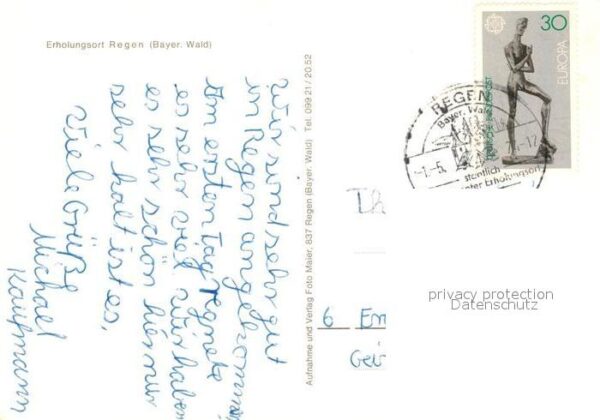 Erholungsort Regen (Bayer. Wald)
Wir sind sehr gut
in Regen angekommen
Am ersten Tag regnete
es sehr viel wir haben
es sehr schön hier nur
sehr kalt ist es.
Viele Grüße
Michael
Kaufmann
Aufnahme und Verlag Foto Maier, 837 Regen (Bayer. Wald) Tel. 099 21 / 20 52
30
EUROPA
DEUTSCHE BUNDESPOST
REGEN
Bayer. Wald
-1.-5.
-12
staatlich
Erholungsort
Th
6 Em
Gei
privacy protection
Datenschutz